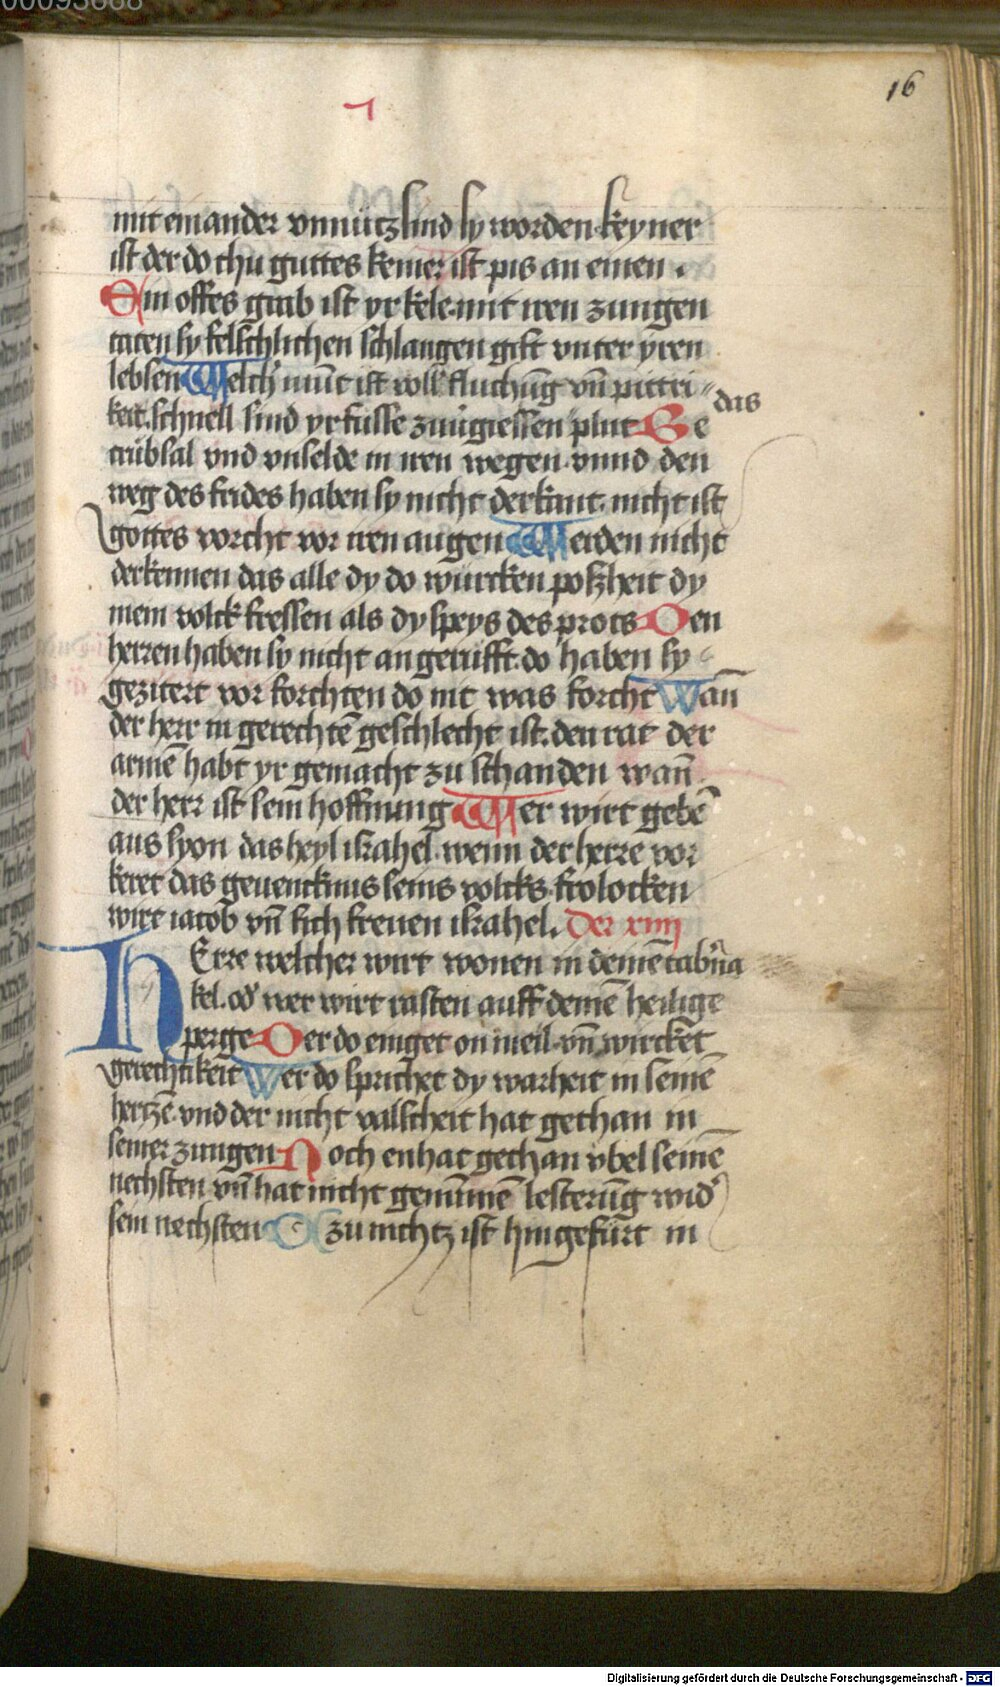 00093668
16
mit einander vnnücz sind sy worden keyner
ist der do thu guttes keiner ist pis an einen .
Ein offes grab ist yr kele. mit iren zungen
taten sy felschlichen schlangen gift vnter yren
lebsen Welch mūt ist voll fluchūg vn̄ pittri〃
das
keit. schnell sind yr füsse zuūgiessen plut Se
trübsal vnd vnselde in iren wegen. vnnd den
weg des frides haben sy nicht derkant. nicht ist
gottes vorcht vor iren augen Werden nicht
derkennen das alle dy do würcken poszheit dy
mein volck fressen als dy speys des prots Den
herren haben sy nicht angerüfft. do haben sy
gezitert vor forchten do nit was forcht Wan̄
der herr in gerechtē geschlecht ist. den rat der
armē habt yr gemacht zu schanden wan̄
der herr ist sein hoffnung Wer wirt gebē
aus syon das heyl israhel. wenn der herre vor
keret das geuencknus seins volcks. frolocken
wirt iacob vn̄ sich freuen israhel. Der xiiij
HErre welcher wirt wonen in deinē tabn̄a
kel. od' wer wirt rasten auff deinē heilige
perge Der do einget on meil. vn̄ wircket
gerechtikeit Wer do sprichet dy warheit in seinē
hertzē. vnd der nicht valscheit hat gethan in
seiner zungen Noch enhat gethan vbel seinē
nechsten vn̄ hat nicht genūmē lesterūg wid'
sein nechsten Czu nichtz ist hingefürt in
Digitalisierung gefördert durch die Deutsche Forschungsgemeinschaft - DFG